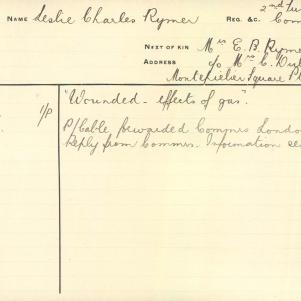 NAME Leslie Charles Rymer REG. &C. 2nd
Com
NEXT OF KIN Mrs E. B. Ryme
ADDRESS c/o Mrs C.
Montefielier Square
1/P "Wounded - effects of gas".
P/Cable forwarded Commrs Londo
Reply from Commrs. Information se